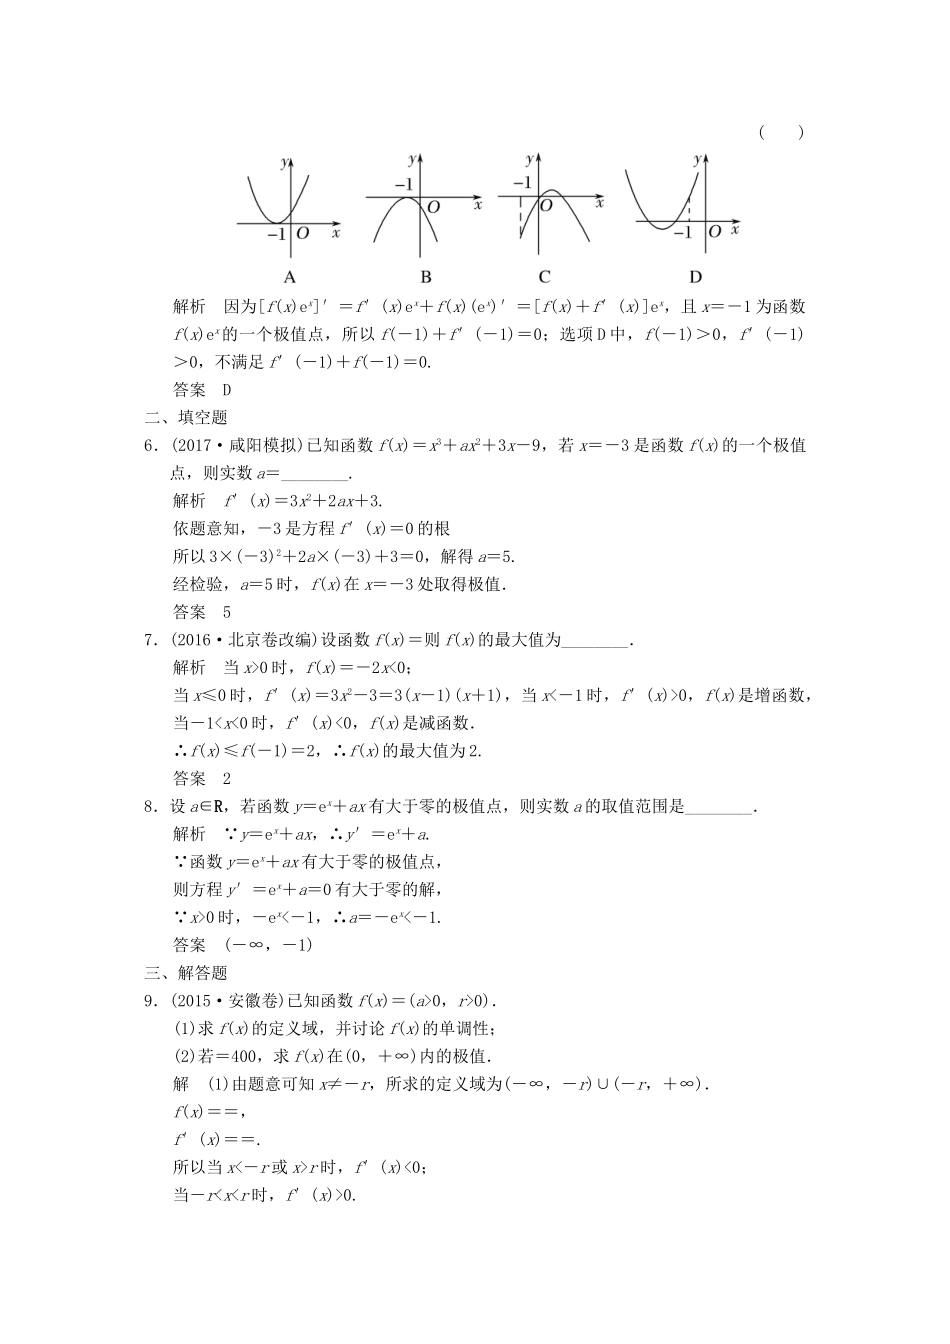 (　　)
y −1 O x　y −1 O x　y −1 O x　y −1 O x
A　B　C　D
解析　因为[f(x)eˣ]′＝f′(x)eˣ＋f(x)(eˣ)′＝[f(x)＋f′(x)]eˣ，且 x＝－1 为函数
f(x)eˣ的一个极值点，所以 f(－1)＋f′(－1)＝0；选项 D 中，f(－1)＞0，f′(－1)
＞0，不满足 f′(－1)＋f(－1)＝0.
答案　D
二、填空题
6．(2017·咸阳模拟)已知函数 f(x)＝x³＋ax²＋3x－9，若 x＝－3 是函数 f(x)的一个极值
点，则实数 a＝________.
解析　f′(x)＝3x²＋2ax＋3.
依题意知，－3 是方程 f′(x)＝0 的根
所以 3×(－3)²＋2a×(－3)＋3＝0，解得 a＝5.
经检验，a＝5 时，f(x)在 x＝－3 处取得极值．
答案　5
7．(2016·北京卷改编)设函数 f(x)＝则 f(x)的最大值为________．
解析　当 x>0 时，f(x)＝－2x<0；
当 x≤0 时，f′(x)＝3x²－3＝3(x－1)(x＋1)，当 x<－1 时，f′(x)>0，f(x)是增函数，
当－1<x<0 时，f′(x)<0，f(x)是减函数．
∴f(x)≤f(－1)＝2，∴f(x)的最大值为 2.
答案　2
8．设 a∈R，若函数 y＝eˣ＋ax 有大于零的极值点，则实数 a 的取值范围是________．
解析　∵y＝eˣ＋ax，∴y′＝eˣ＋a.
∵函数 y＝eˣ＋ax 有大于零的极值点，
则方程 y′＝eˣ＋a＝0 有大于零的解，
∵x>0 时，－eˣ<－1，∴a＝－eˣ<－1.
答案　(－∞，－1)
三、解答题
9．(2015·安徽卷)已知函数 f(x)＝(a>0，r>0)．
(1)求 f(x)的定义域，并讨论 f(x)的单调性；
(2)若＝400，求 f(x)在(0，＋∞)内的极值．
解　(1)由题意可知 x≠－r，所求的定义域为(－∞，－r)∪(－r，＋∞)．
f(x)＝＝，
f′(x)＝＝.
所以当 x<－r 或 x>r 时，f′(x)<0；
当－r<x<r 时，f′(x)>0.